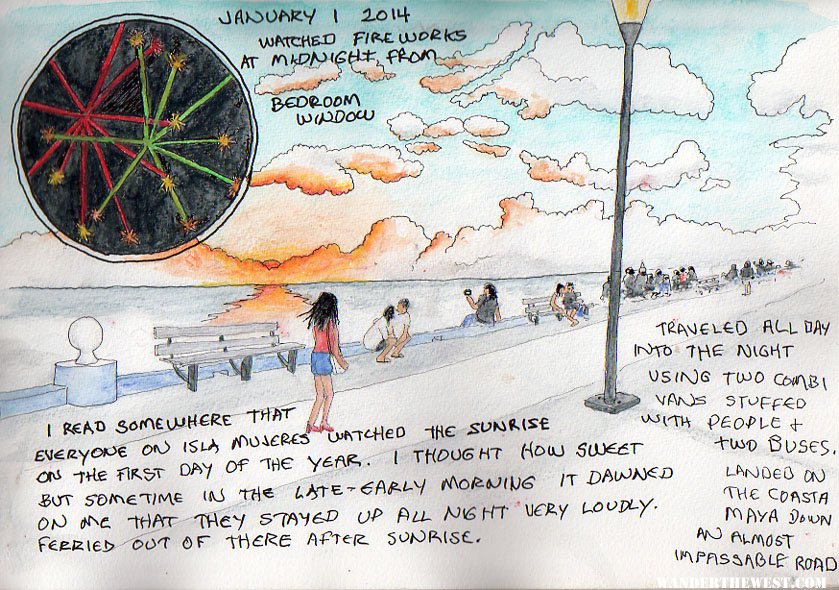 JANUARY 1 2014
WATCHED FIREWORKS
AT MIDNIGHT FROM
BEDROOM
WINDOW
I READ SOMEWHERE THAT
EVERYONE ON ISLA MUJERES WATCHED THE SUNRISE
ON THE FIRST DAY OF THE YEAR. I THOUGHT HOW SWEET
BUT SOMETIME IN THE LATE-EARLY MORNING IT DAWNED
ON ME THAT THEY STAYED UP ALL NIGHT VERY LOUDLY.
FERRIED OUT OF THERE AFTER SUNRISE.
TRAVELED ALL DAY
INTO THE NIGHT
USING TWO COMBI
VANS STUFFED
WITH PEOPLE +
TWO BUSES.
LANDED ON
THE COASTA
MAYA DOWN
AN ALMOST
IMPASSABLE ROAD
WANDERTHEWEST.COM